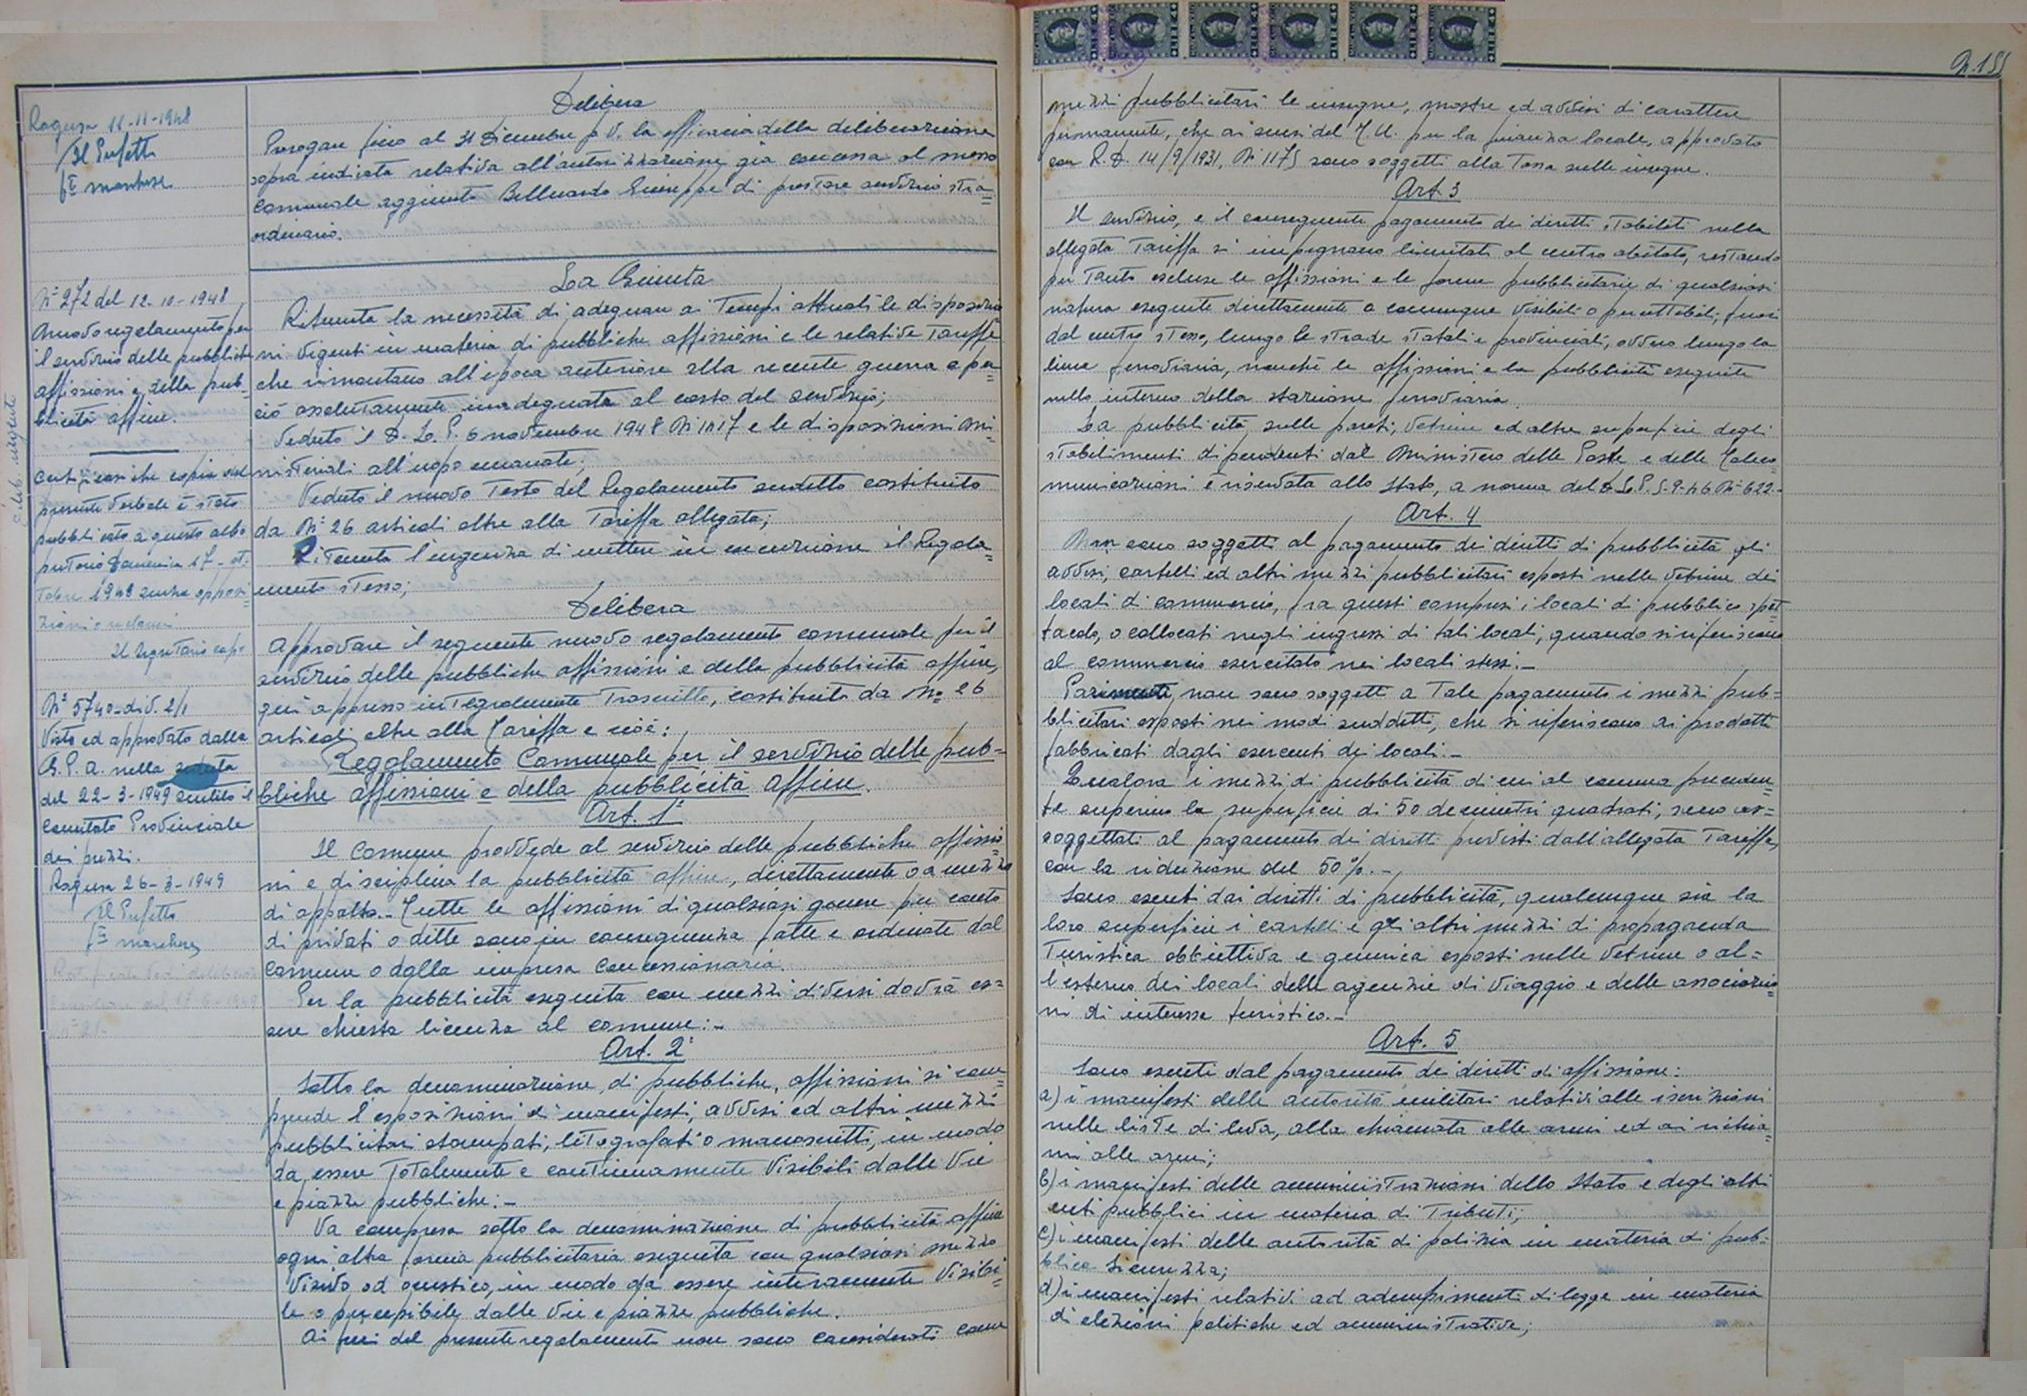 Ragusa 11-11-1948
Il Prefetto
Delibera
Prorogare fino al 31 Dicembre p.v. la efficacia della deliberazione
sopra indicata relativa all'autorizzazione già concessa al messo
comunale aggiunto Belluardo Giuseppe di prestare servizio stra=
ordinario.
N° 272 del 12-10-1948
Nuovo regolamento per
il servizio delle pubbliche
affissioni e della pub-
blicità affine.
Certificasi che copia del
presente verbale è stato
pubblicato a questo albo
pretorio Domenica 17-ot
tobre 1948 senza opposi
zioni o reclami
Il Segretario capo
N° 5740-div. 2/1
Visto ed approvato dalla
G.P.A. nella seduta
del 22-3-1949 sentito il
Comitato Provinciale
dei prezzi.
Ragusa 26-3-1949
Il Prefetto
La Giunta
Ritenuta la necessità di adeguare ai tempi attuali le disposizio
ni vigenti in materia di pubbliche affissioni e le relative tariffe
che rimontano all'epoca anteriore alla recente guerra e per=
ciò assolutamente inadeguata al costo del servizio;
Veduto il D. L. P. 6 novembre 1948 N° 1417 e le disposizioni mi=
nisteriali all'uopo emanate;
Veduto il nuovo testo del Regolamento suddetto costituito
da N° 26 articoli oltre alla Tariffa allegata;
Ritenuta l'urgenza di mettere in esecuzione il Regola=
mento stesso;
Delibera
approvare il seguente nuovo regolamento comunale per il
servizio delle pubbliche affissioni e della pubblicità affine,
qui appresso integralmente trascritto, costituito da No 26
articoli oltre alla Tariffa e cioè:
Regolamento Comunale per il servizio delle pub=
bliche affissioni e della pubblicità affine.
Art. 1°
Il Comune provvede al servizio delle pubbliche affissio
ni e disciplina la pubblicità affine, direttamente o a mezzo
di appalto.- Tutte le affissioni di qualsiasi genere per conto
di privati o ditte sono in conseguenza fatte e ordinate dal
Comune o dalla impresa concessionaria.
Per la pubblicità eseguita con mezzi diversi dovrà es=
sere chiesta licenza al comune:-
Art. 2°
Sotto la denominazione di pubbliche affissioni si com
prende l'esposizioni di manifesti, avvisi ed altri mezzi
pubblicitari stampati, litografati o manoscritti, in modo
da essere totalmente e continuamente visibili dalle vie
e piazze pubbliche:-
Va compresa sotto la denominazione di pubblicità affine
ogni altra forma pubblicitaria eseguita con qualsiasi mezzo
visivo od acustico, in modo da essere interamente visibi=
le o percepibile dalle vie e piazze pubbliche.
Ai fini del presente regolamento non sono considerati come
N. 155
mezzi pubblicitari le insegne, mostre ed avvisi di carattere
permanente, che ai sensi del T.U. per la finanza locale, approvato
con R.D. 14/9/1931, N° 1175 sono soggetti alla tassa sulle insegne.
Art 3
Il servizio, e il conseguente pagamento dei diritti stabiliti nella
allegata Tariffa si impegnano limitati al centro abitato, restando
per tanto escluse le affissioni e le forme pubblicitarie di qualsiasi
natura eseguite direttamente o comunque visibili o percettibili, fuori
dal centro stesso, lungo le strade statali e provinciali, ovvero lungo la
linea ferroviaria, nonché le affissioni e la pubblicità eseguite
nello interno della stazione ferroviaria.
La pubblicità sulle pareti, vetrine ed altre superficie degli
stabilimenti dipendenti dal Ministero delle Poste e delle Teleco
municazioni è riservata allo Stato, a norma del D.L.P. 5-9-46 N° 622.-
Art. 4
Non sono soggetti al pagamento dei diritti di pubblicità gli
avvisi, cartelli ed altri mezzi pubblicitari esposti nelle vetrine dei
locali di commercio, fra questi compresi i locali di pubblico spet
tacolo, o collocati negli ingressi di tali locali, quando si riferiscano
al commercio esercitato nei locali stessi.-
Parimenti non sono soggetti a tale pagamento i mezzi pub=
blicitari esposti nei modi suddetti, che si riferiscano ai prodotti
fabbricati dagli esercenti dei locali.-
Qualora i mezzi di pubblicità di cui al comma preceden
te superino la superficie di 50 decimetri quadrati, sono as=
soggettati al pagamento dei diritti previsti dall'allegata Tariffa,
con la riduzione del 50%.-
Sono esenti dai diritti di pubblicità, qualunque sia la
loro superficie i cartelli e gli altri mezzi di propaganda
Turistica obbiettiva e generica esposti nelle vetrine o al=
l'esterno dei locali delle agenzie di viaggio e delle associazio
ni di interesse turistico.-
Art. 5
Sono esenti dal pagamento dei diritti di affissione:
a) i manifesti delle autorità militari relativi alle iscrizioni
nelle liste di leva, alla chiamata alle armi ed ai richia=
mi alle armi;
b) i manifesti delle amministrazioni dello Stato e degli altri
enti pubblici in materia di Tributi;
c) i manifesti delle autorità di polizia in materia di pub=
blica Sicurezza;
d) i manifesti relativi ad adempimenti di legge in materia
di elezioni politiche ed amministrative;